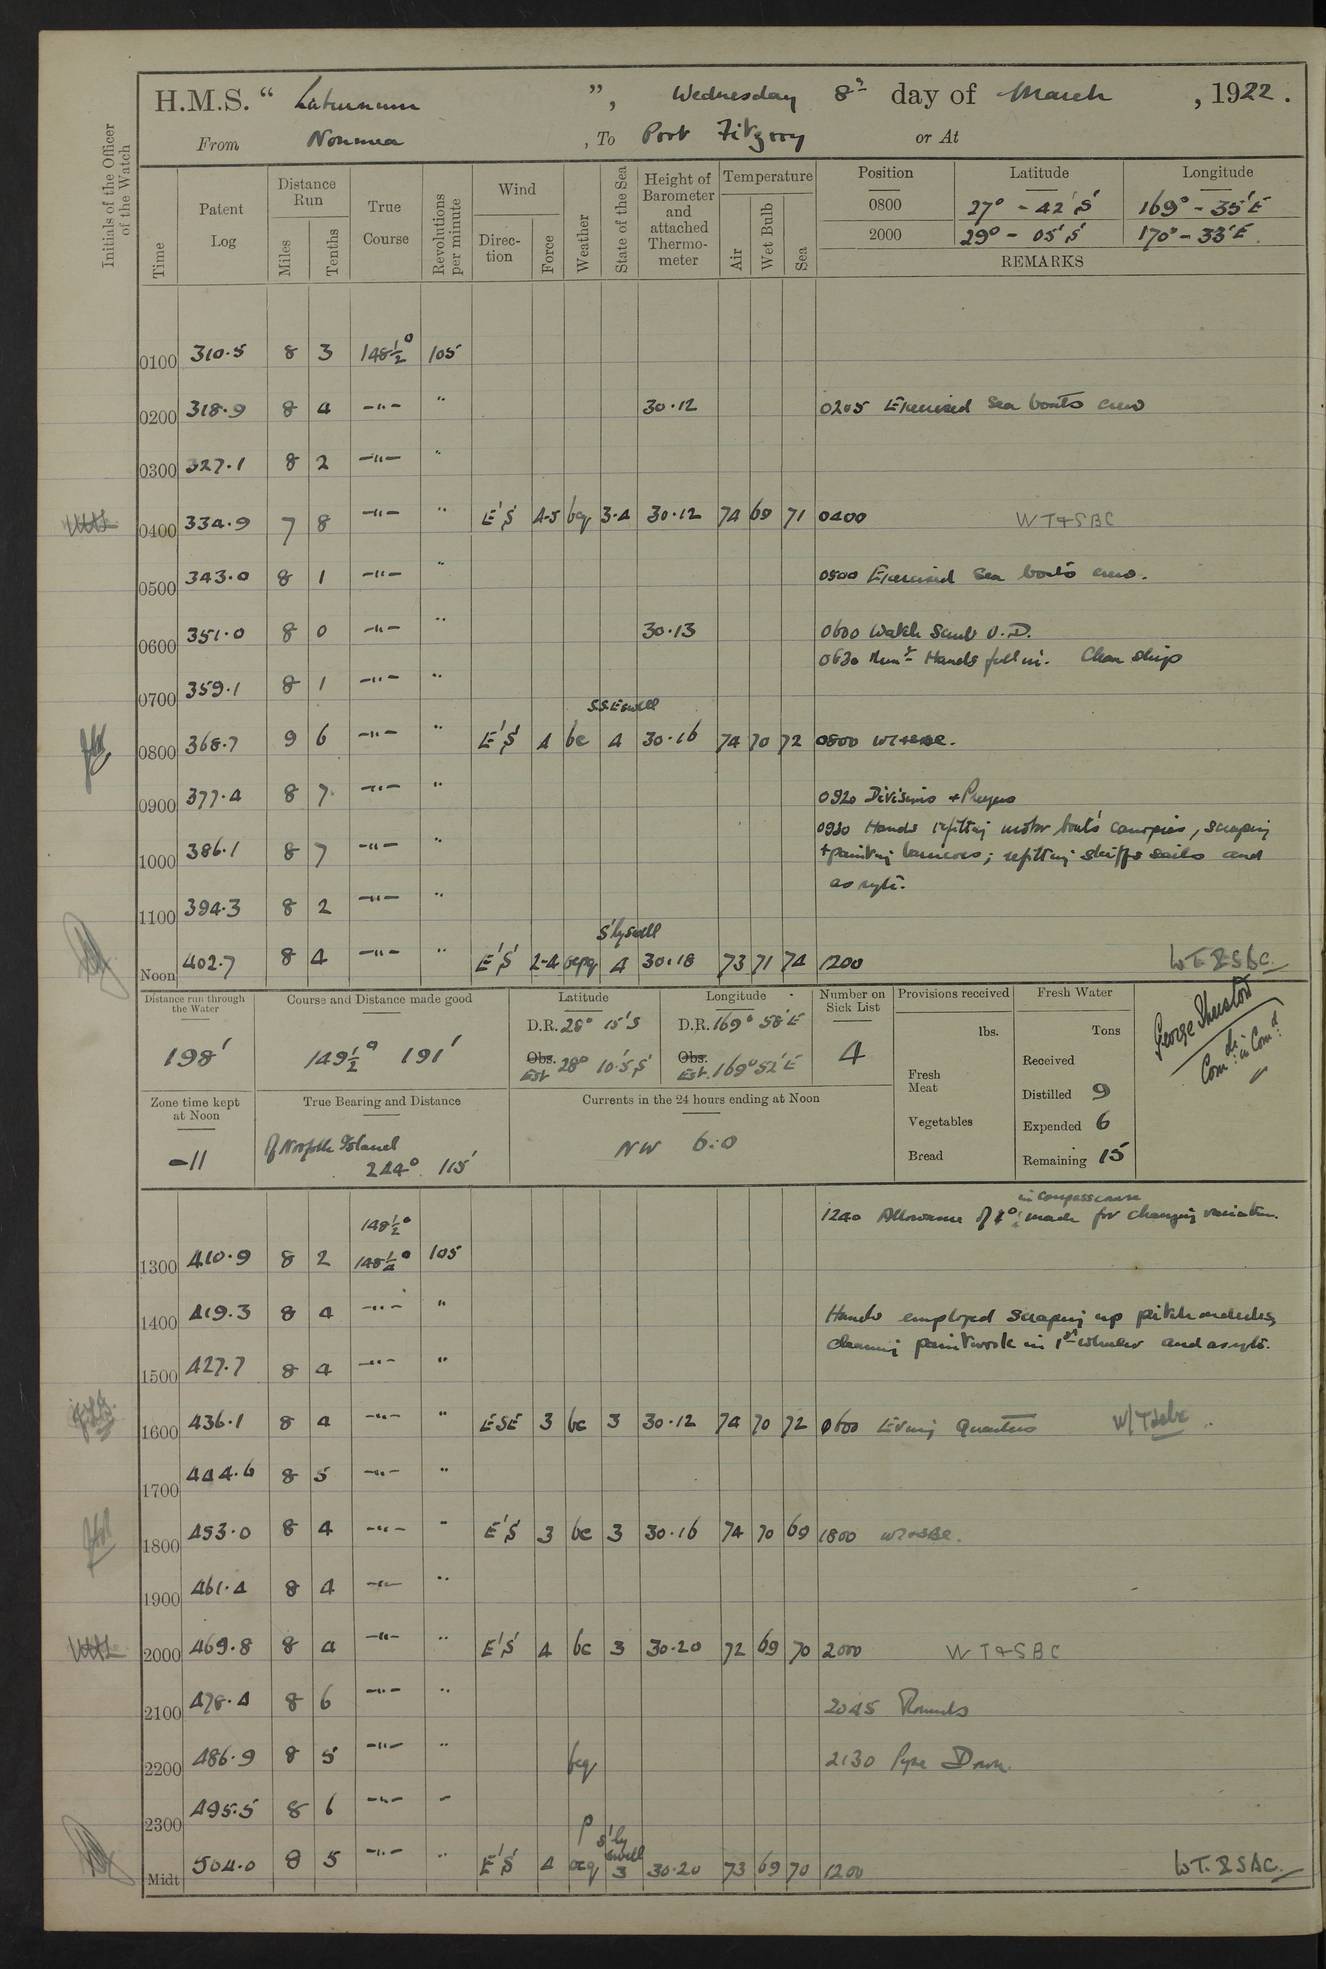 H.M.S. “ Laburnum ”, Wednesday 8th day of March , 1922 .
From Noumea , To Port Fitzroy or At
Initials of the Officer of the Watch
Time
Patent Log
Distance Run
Miles
Tenths
True Course
Revolutions per minute
Wind
Direction
Force
Weather
State of the Sea
Height of Barometer and attached Thermometer
Temperature
Air
Wet Bulb
Sea
Position Latitude Longitude
0800 27° - 42' S 169° - 35' E
2000 29° - 05' S 170° - 33' E.
REMARKS
0100 310.5 8 3 148½° 105
0200 318.9 8 4 —"— " 30.12 0205 Exercised Sea boats crew
0300 327.1 8 2 —"— "
0400 334.9 7 8 —"— " E'S 4-5 bcq 3.4 30.12 74 69 71 0400 WT+SBC
0500 343.0 8 1 —"— " 0500 Exercised Sea boats crew.
0600 351.0 8 0 —"— " 30.13 0600 Watch Scrub U.D.
0630 Hands fell in. Clean ship
0700 359.1 8 1 —"— "
S.S.E swell
0800 368.7 9 6 —"— " E'S 4 bc 4 30.16 74 70 72 0800 WT+SBC.
0900 377.4 8 7 —"— " 0920 Divisions + Prayers
0930 Hands refitting motor boat's canopies, scraping
1000 386.1 8 7 —"— " + painting ; refitting skiffs sails and
as reqte.
1100 394.3 8 2 —"— "
S'ly swell
Noon 402.7 8 4 —"— " E'S 2-4 bcpq 4 30.18 73 71 74 1200 WT. & SBC.
Distance run through the Water
198'
Course and Distance made good
149½° 191'
Latitude
D.R. 28° 15' S
Obs. Est 28° 10'.5 S
Longitude
D.R. 169° 58' E
Obs. Est. 169° 52' E
Number on Sick List
4
Provisions received
lbs.
Fresh Meat
Vegetables
Bread
Fresh Water
Tons
Received
Distilled 9
Expended 6
Remaining 15
George Thurstow
Comdr: in Comd:
Zone time kept at Noon
-11
True Bearing and Distance
of Norfolk Island
244° 115'
Currents in the 24 hours ending at Noon
NW 6.0
in compass course
1240 Allowance of ¼° made for changing variation.
148½°
1300 410.9 8 2 148¼° 105
1400 419.3 8 4 —"— " Hands employed scraping up pitch on decks,
cleaning paintwork in 1st whaler and as reqte.
1500 427.7 8 4 —"— "
1600 436.1 8 4 —"— " ESE 3 bc 3 30.12 74 70 72 0600 Evening Quarters W/T+SBC
1700 444.6 8 5 —"— "
1800 453.0 8 4 —"— " E'S 3 bc 3 30.16 74 70 69 1800 WT+SBC.
1900 461.4 8 4 —"— "
2000 469.8 8 4 —"— " E'S 4 bc 3 30.20 72 69 70 2000 WT+SBC
2100 478.4 8 6 —"— " 2045 Rounds
2200 486.9 8 5 —"— " bcq 2130 Pipe Down.
2300 495.5 8 6 —"— "
p S'ly swell
Midt 504.0 8 5 —"— " E'S 4 ocq 3 30.20 73 69 70 1200 WT. & SBC.